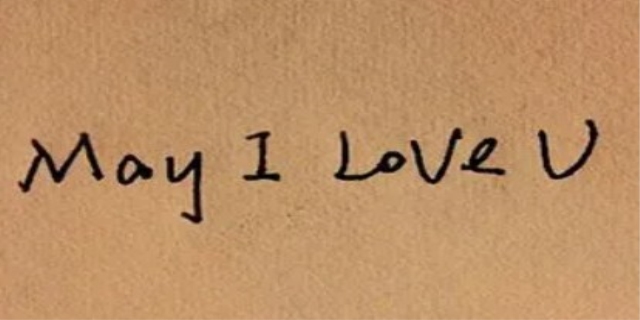 May I Love U